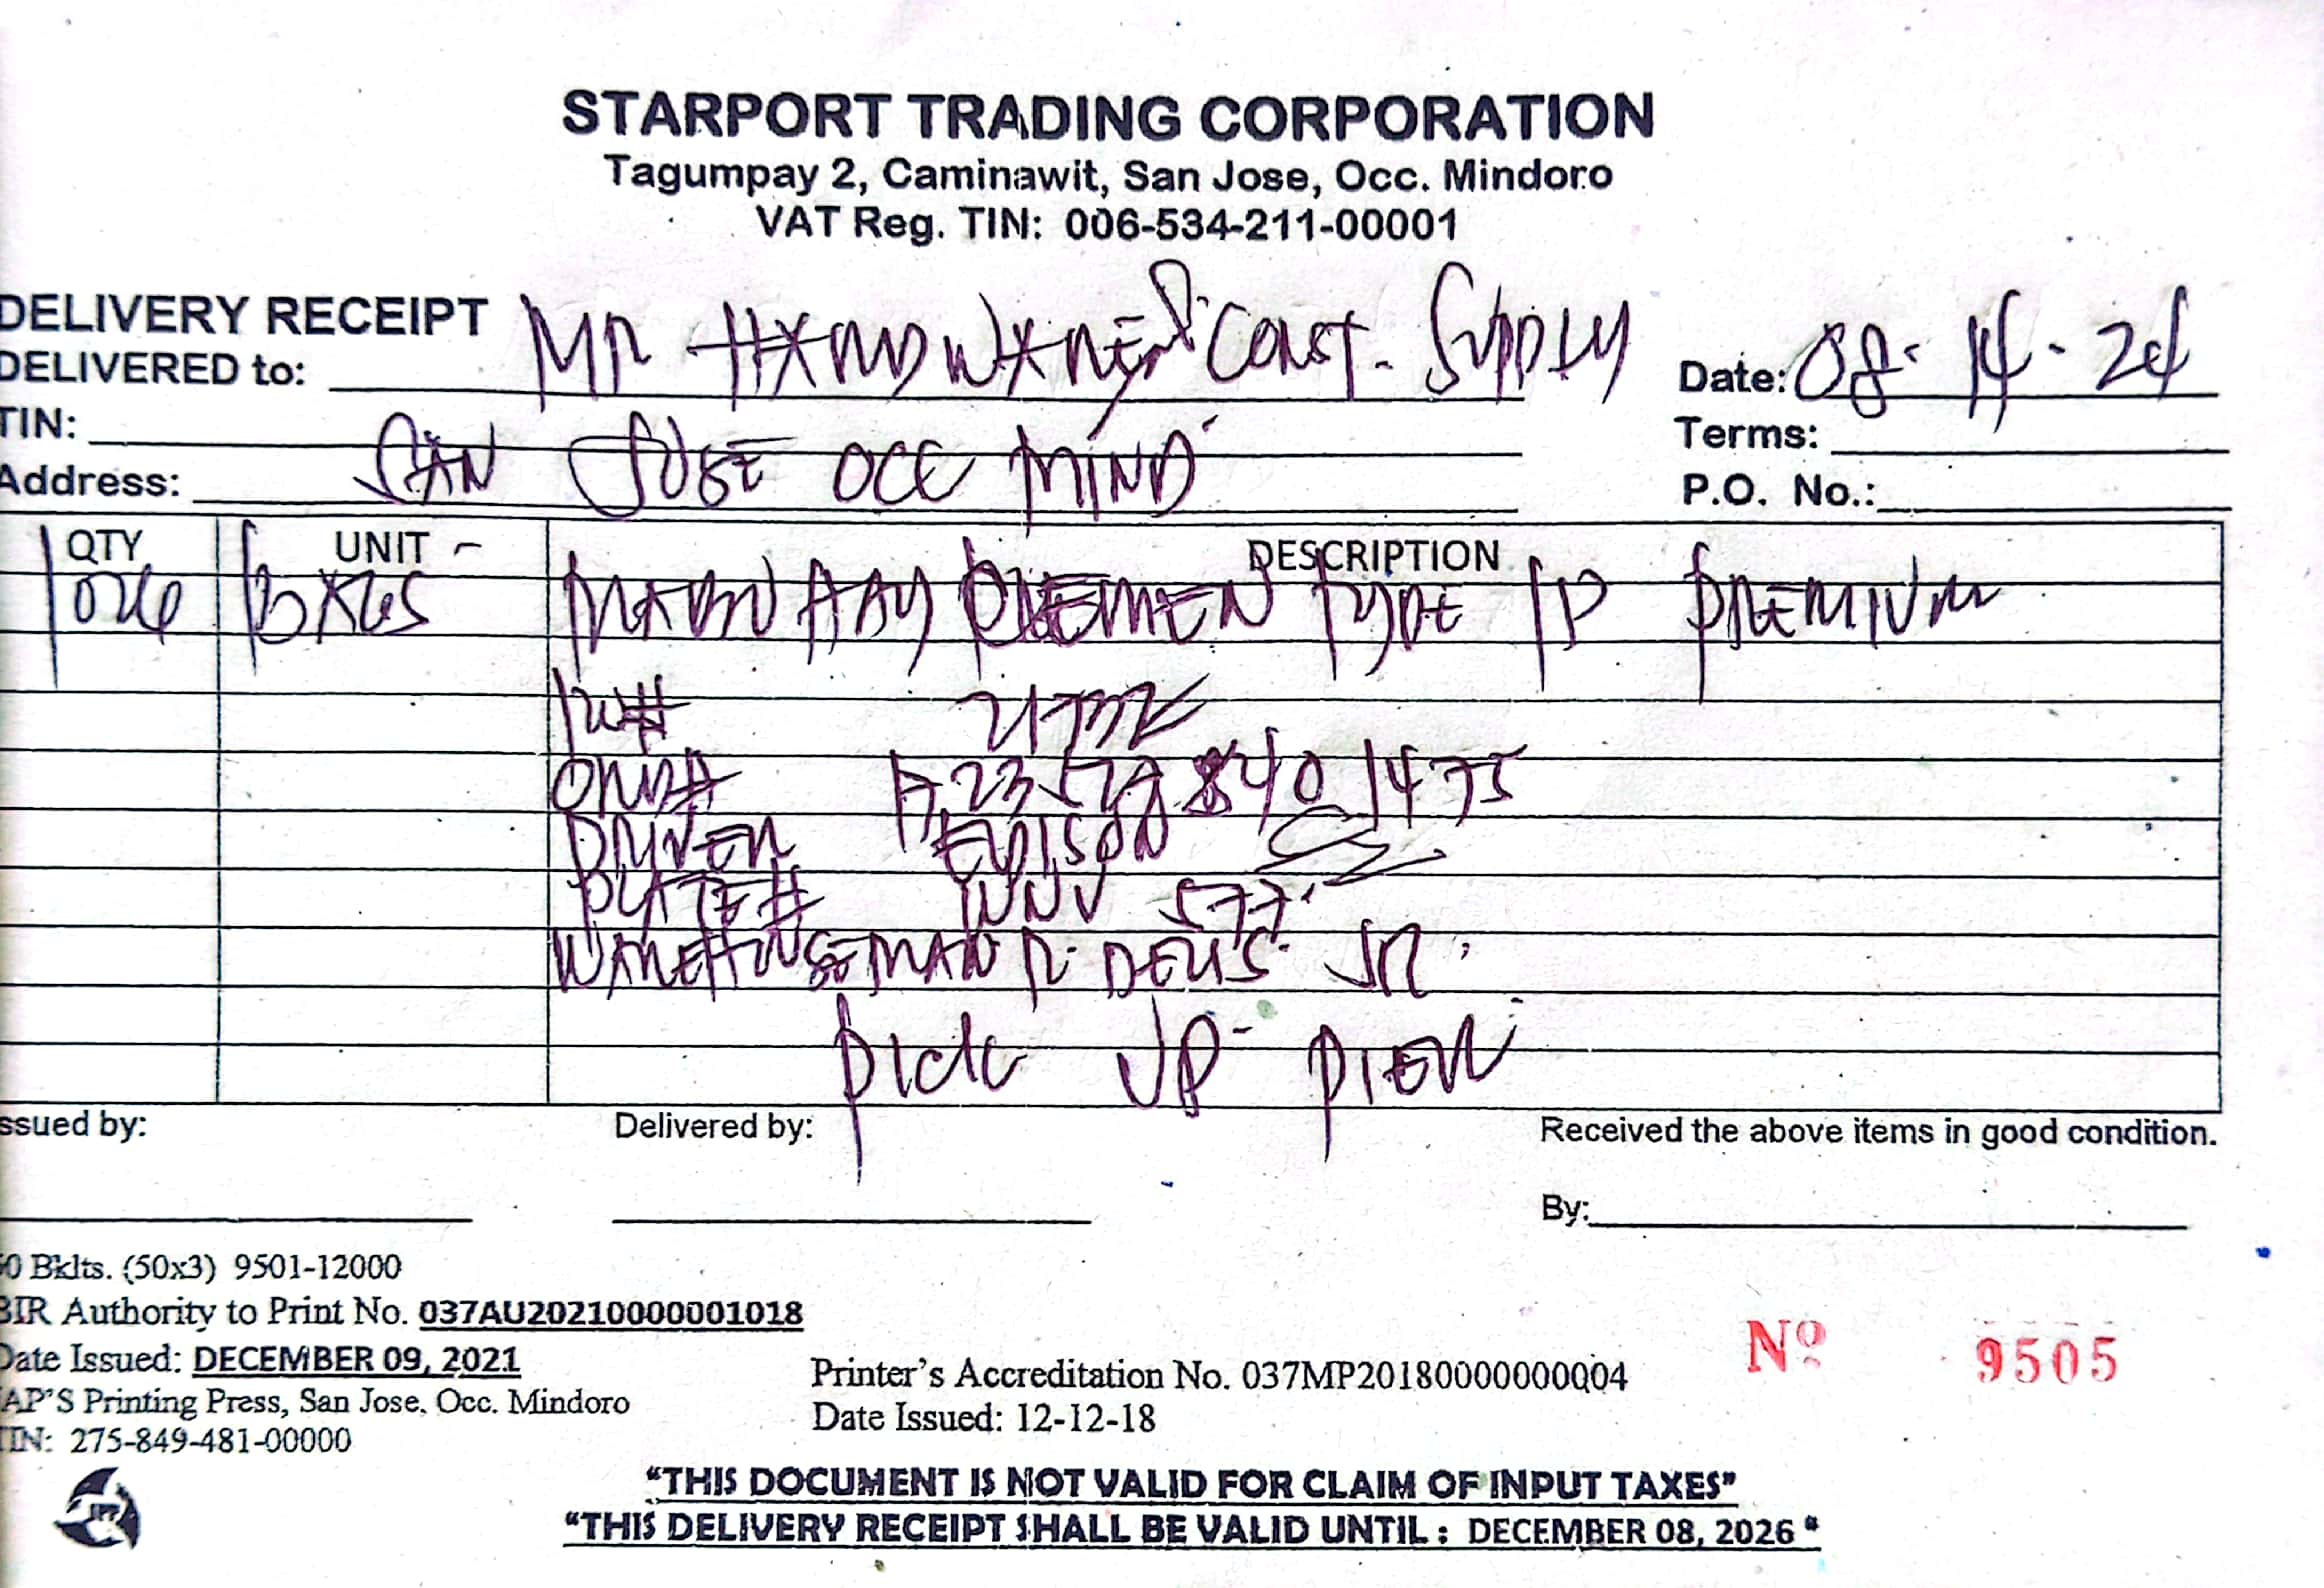 STARPORT TRADING CORPORATION
Tagumpay 2, Caminawit, San Jose, Occ. Mindoro
VAT Reg. TIN: 006-534-211-00001
DELIVERY RECEIPT
DELIVERED to: MR HARDWARE & CONST. SUPPLY Date: 08-14-24
TIN: Terms:
Address: SAN JOSE OCC MIND P.O. No.:
QTY UNIT DESCRIPTION
BAGS TYPE 1P PREMIUM
DRIVER EDISON
PLATE# 577
WAREHOUSEMAN R. DEUS JR.
PICK UP PIER
ssued by: Delivered by: Received the above items in good condition.
By:
0 Bklts. (50x3) 9501-12000
BIR Authority to Print No. 037AU20210000001018
Date Issued: DECEMBER 09, 2021
AP'S Printing Press, San Jose, Occ. Mindoro
TIN: 275-849-481-00000
Printer's Accreditation No. 037MP20180000000004
Date Issued: 12-12-18
Nº 9505
"THIS DOCUMENT IS NOT VALID FOR CLAIM OF INPUT TAXES"
"THIS DELIVERY RECEIPT SHALL BE VALID UNTIL : DECEMBER 08, 2026 "